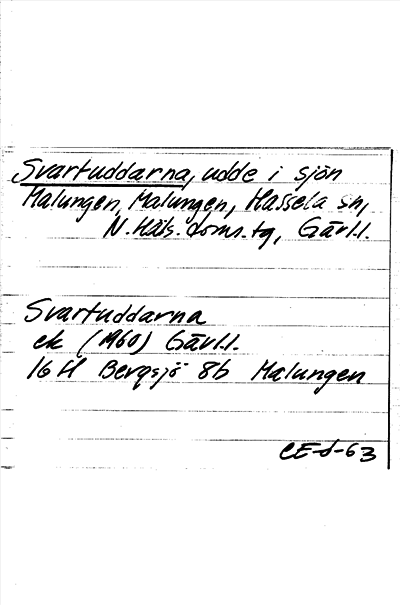 Svartuddarna, udde i sjön
Malungen, Malungen, Hassela sn,
N. Häls. doms. tg, Gävl.l.
Svartuddarna
ek (1960) Gävl.l.
16 H Bergsjö 8b Malungen
CE-d-63